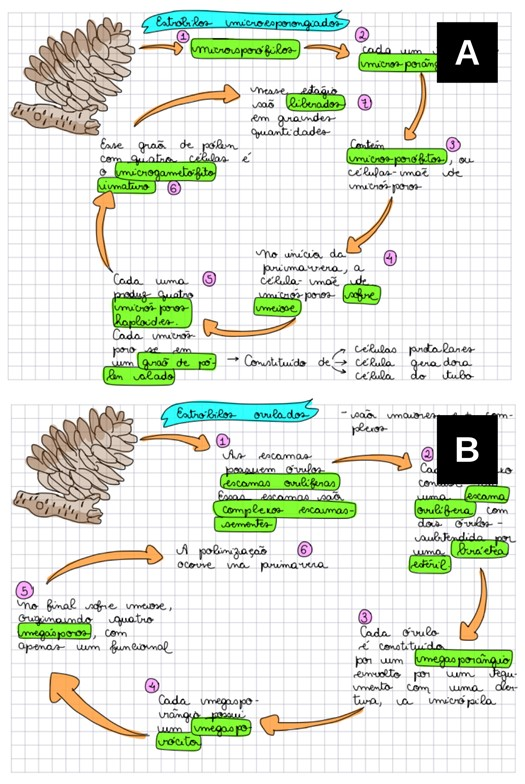 Estróbilos microesporongiados
A
1
microsporófilos
2
cada um
microsporân
3
Contém
microsporófitos, ou
células-mãe de
micrósporos
4
No início da
primavera, a
célula-mãe de
micrósporos sofre
meiose
5
Cada uma
produz quatro
micrósporos
haploides.
Cada micrós-
poro se em
um graão de pó-
len alado
→ Constituído de
células protalares
célula geradora
célula do tubo
Esse graão de pólen
com quatro células é
o microgametófito
imaturo 6
nesse estágio
são liberados 7
em grandes
quantidades
Estróbilos ovulados
- são maiores com-
plexos
B
1
As escamas
possuem óvulos
escamas ovulíferas
Essas escamas são
complexos escamas-
sementes
2
uma escama
ovulífera com
dois óvulos -
subtendida por
uma bráctea
estéril
3
Cada óvulo
é constituído
por um megasporângio
envolto por um tegu-
mento com uma aber-
tura, a micrópila
4
Cada megaspo-
rângio possui
um megaspo-
rócito
5
No final sofre meiose,
originando quatro
megásporos, com
apenas um funcional
6
A polinização
ocorre na primavera